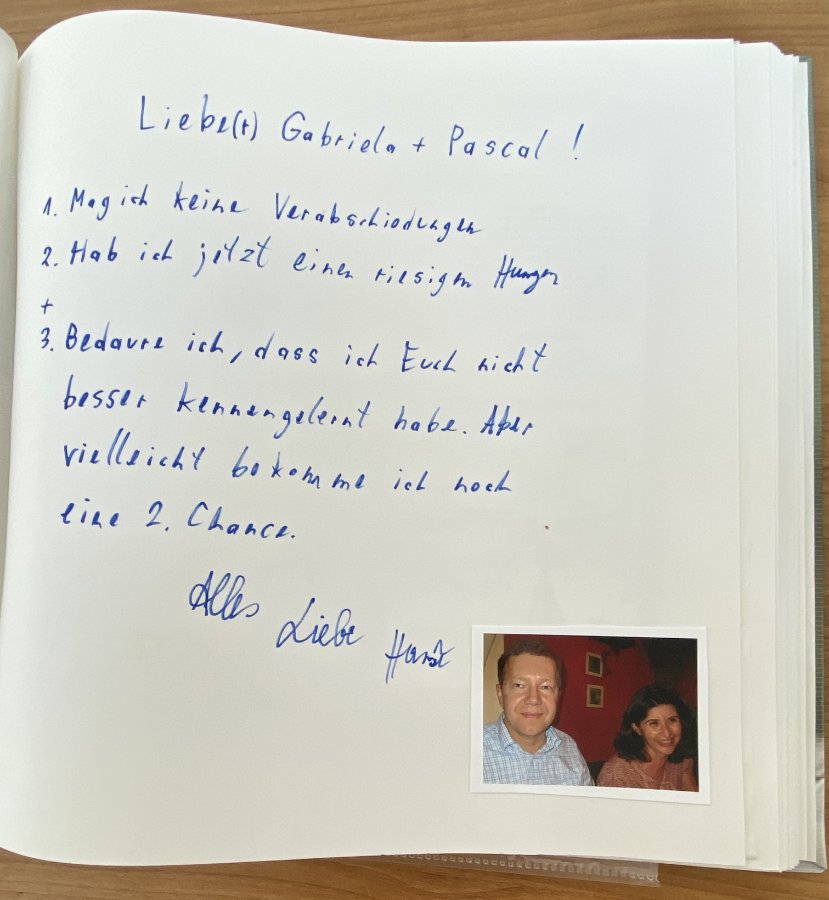 Liebe(r) Gabriela + Pascal !
1. Mag ich keine Verabschiedungen
2. Hab ich jetzt einen riesigen Hunger
+
3. Bedaure ich, dass ich Euch nicht
besser kennengelernt habe. Aber
vielleicht bekomme ich noch
eine 2. Chance.
Alles Liebe Horst